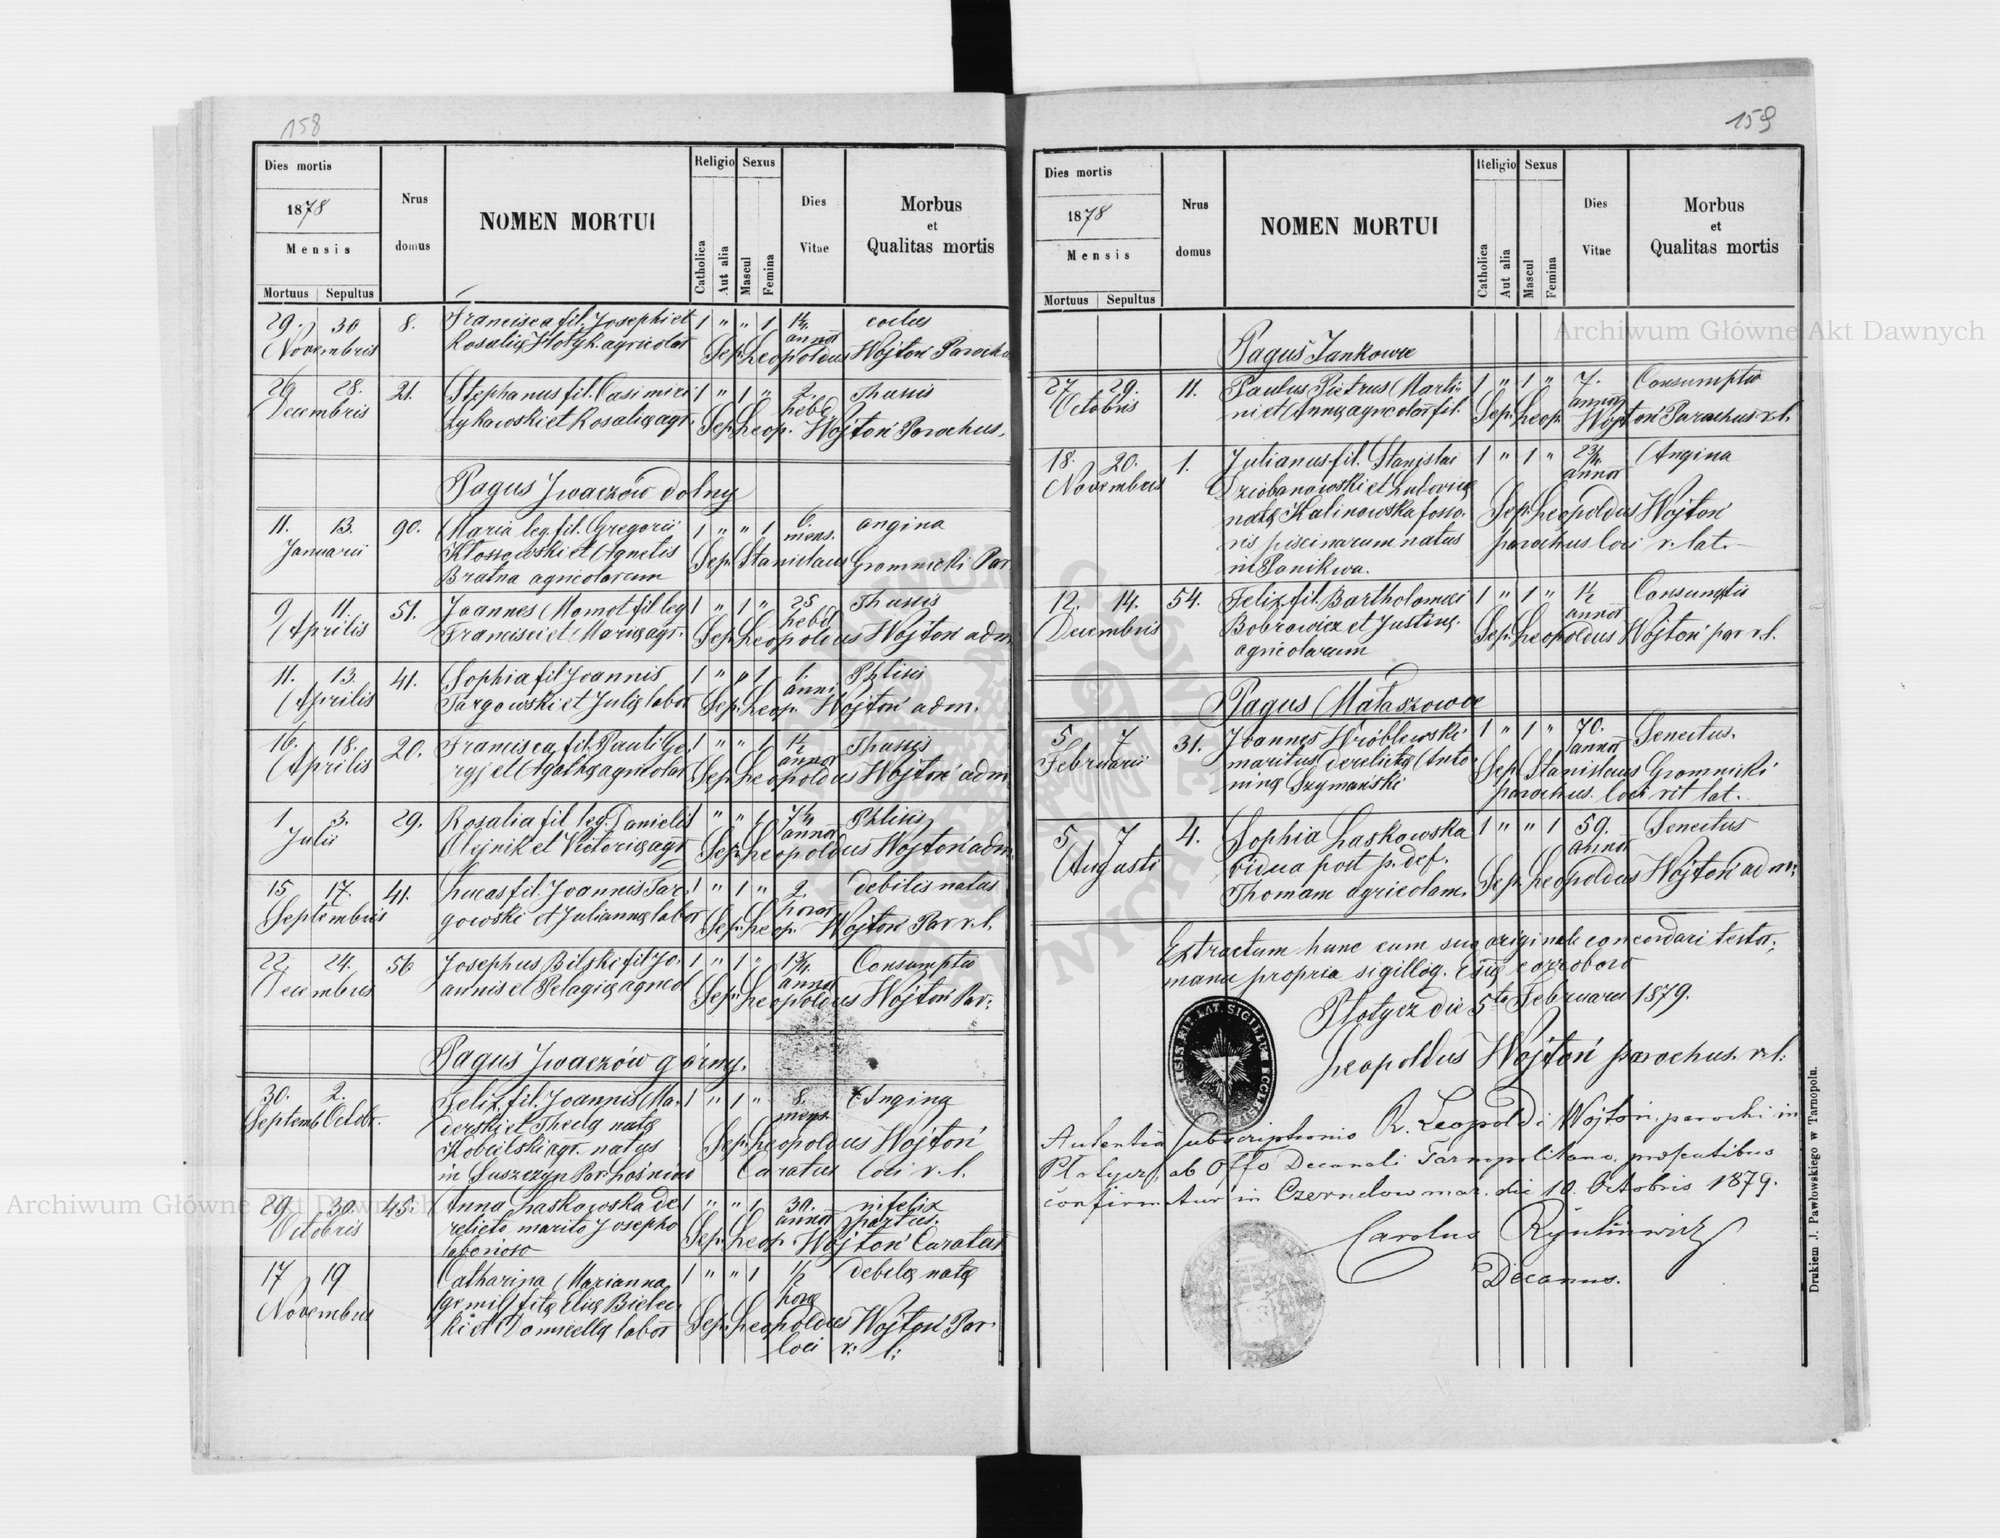 158
Dies mortis
1878
Mensis
Mortuus Sepultus
Nrus domus
NOMEN MORTUI
Religio
Catholica
Aut alia
Sexus
Mascul
Femina
Dies Vitae
Morbus
et
Qualitas mortis
29. 30 8. Francisca fil. Josephi et 1 " " 1 1½ coclus
Novembris Rosalię Hotyk agricolar annor
Sep. Leopoldus Wojtoń Parochus
26 28. 21. Stephanus fil. Casimiri 1 " 1 " 2. Thussis
Decembris Łykowski et Rosalię agr. hebd
Sep. Leop. Wojtoń Parochus.
Pagus Iwaczów dolny
11. 13. 90. Maria leg. fil. Gregorii 1 " " 1 6. angina
Januarii Kłossowski et Agnetis mens.
Bratna agricolarum
Sep. Stanislaus Gromnicki Par.
9 11. 51. Joannes Momot fil leg 1 " 1 " 25 Thussis
Aprilis Francisci et Marię agr. hebd
Sep. Leopoldus Wojtoń adm.
11. 13. 41. Sophia fil Joannis 1 " " 1 1. Phtisis
Aprilis Targowski et Julię labor anni
Sep. Leop. Wojtoń adm.
16. 18. 20. Francisca fil. Pauli Ge- 1 " " 1 1½ Thussis
Aprilis ryj et Agathę agricolar annor
Sep. Leopoldus Wojtoń adm
1 3. 29. Rosalia fil leg. Danielis 1 " " 1 7½ Phtisis
Julii Olejnik et Victorię agr annor
Sep. Leopoldus Wojtoń adm.
15 17. 41. Lucas fil. Joannis Tar- 1 " 1 " 2. debilis natus
Septembris gowski et Juliannę labor horar
Sep. Leop. Wojtoń Par r. l.
22 24. 56 Josephus Bilski fil Jo- 1 " 1 " 1¾ Consumptio
Decembris annis et Pelagię agricol annor
Sep. Leopoldus Wojtoń Par.
Pagus Iwaczów górny.
30. 2. Felix fil. Joannis Ma- 1 " 1 " 8. Angina
Septemb. Octobr. derski et Theclę natę mens.
Kobielski agr. natus
in Suszczyn Par.
Sep. Leopoldus Wojtoń
Curatus loci r. l.
29. 30. 45. Anna Laskowska de- 1 " " 1 30. infelix
Octobris relicto marito Josepho annor partus.
laborioso
Sep. Leop. Wojtoń Curatus
17 19 Catharina Marianna 1 " " 1 ½ debilę natę
Novembris (gemil) filę Elię Bielec- horę
ki et Domicellę labor
Sep. Leopoldus Wojtoń Par
loci r. l.
159
Dies mortis
1878
Mensis
Mortuus Sepultus
Nrus domus
NOMEN MORTUI
Religio
Catholica
Aut alia
Sexus
Mascul
Femina
Dies Vitae
Morbus
et
Qualitas mortis
Pagus Jankowce
27 29. 11. Paulus Pietrus Marti- 1 " 1 " 7. Consumptio
Octobris ni et Annę agricolar fil. annor
Sep. Leop. Wojtoń Parochus r. l.
18. 20. 1. Julianus fil. Stanislai 1 " 1 " 2¾ Angina
Novembris Dziobanowski et Ludovicę annor
natę Kalinowska fosso-
ris piscinarum natus
in Ponikwa.
Sep. Leopoldus Wojtoń
parochus loci r. lat.
12. 14. 54. Felix fil. Bartholomaei 1 " 1 " 1½ Consumptio
Decembris Bobrowicz et Justinę annor
agricolarum
Sep. Leopoldus Wojtoń par r. l.
Pagus Mataszowce
5 7 31. Joannes Wróblewski 1 " 1 " 70. Senectus.
Februarii maritus derelictę Anto- annor
ninę Szymański
Sep. Stanislaus Gromnicki
parochus loci rit lat.
5 7 4. Sophia Laskowska 1 " " 1 59. Senectus
Augusti vidua post p. def. annor
Thomam agricolam.
Sep. Leopoldus Wojtoń adm:
Extractum hunc cum suo originale concordari testor,
manu propria sigilloq. corroboro
Płotycz die 5ta Februarii 1879.
Leopoldus Wojtoń parochus r. l.
Autentia subscriptionis R. Leopoldi Wojtoń parochi in
Płotycz, ab Offo Decanali Tarnopolitano, praesentibus
confirmatur in Czernelow maz. die 10. Octobris 1879.
Carolus
Decanus.
Drukiem J. Pawłowskiego w Tarnopolu.
Archiwum Główne Akt Dawnych
Archiwum Główne Akt Dawnych